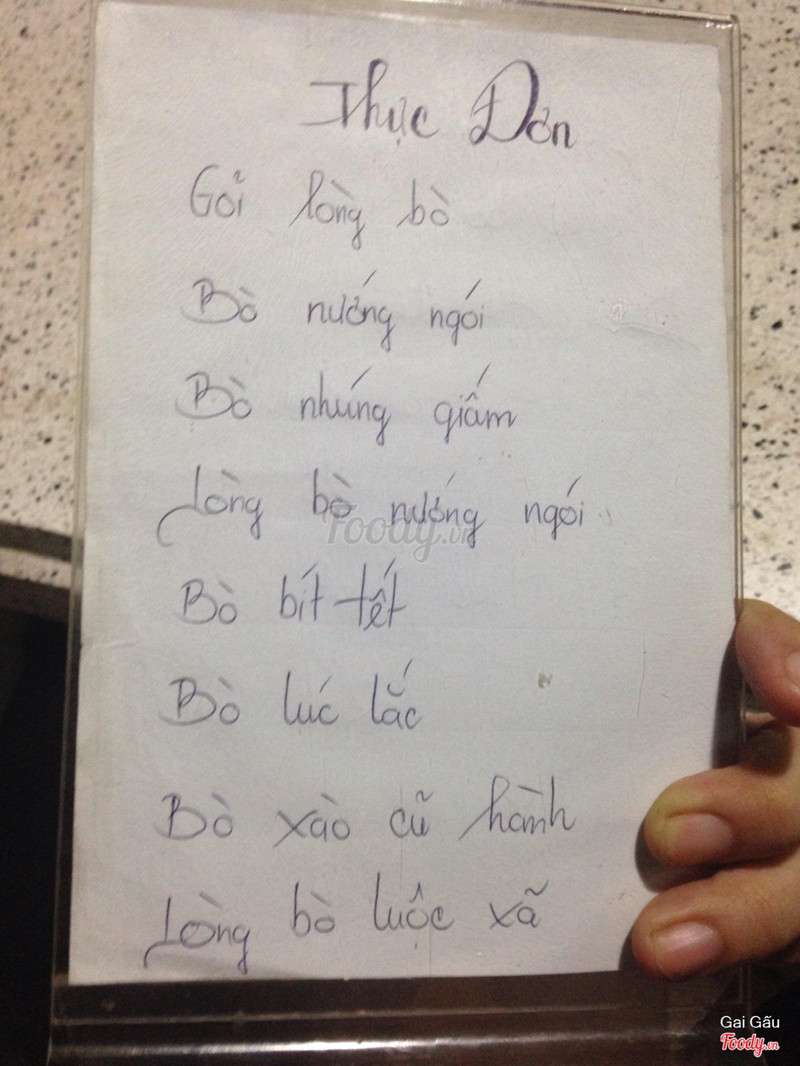 Thực Đơn
Gỏi lòng bò
Bò nướng ngói
Bò nhúng giấm
Lòng bò nướng ngói
Foody.vn
Bò bít tết
Bò lúc lắc
Bò xào cũ hành
Lòng bò luộc xã
Gai Gấu
Foody.vn